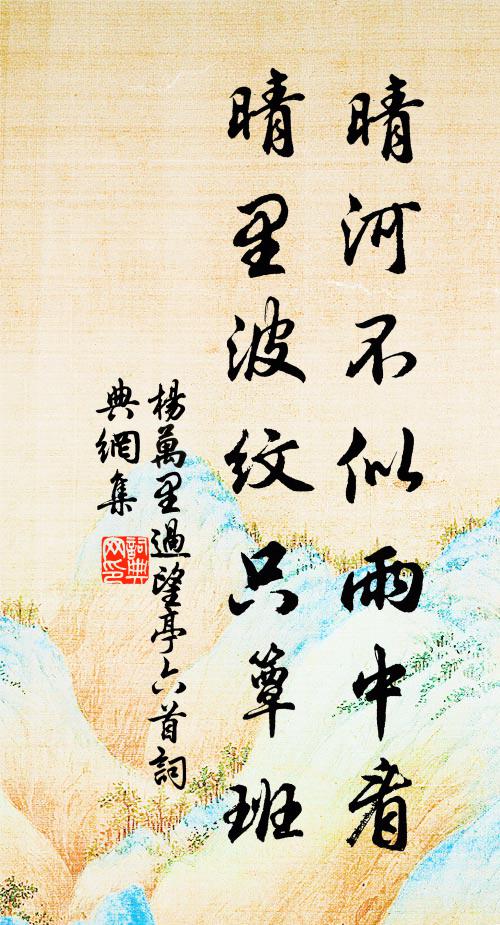 晴河不似雨中看
晴里波紋只簟班
楊萬里過望亭六首詞
典網集
詞典
网印